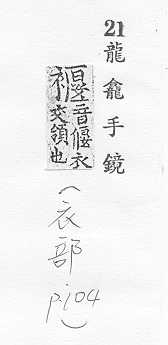 21 龍龕手鏡
褗音偃衣
交領也
(衣部
p.104)